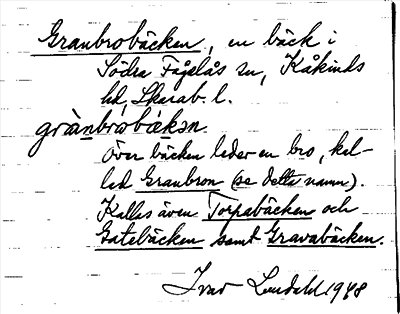 Granbrobäcken, en bäck i
Södra Fågelås sn, Kåkinds
hd, Skarab. l.
grànbrobäkən.
Över bäcken leder en bro, kal-
lad Granbron (se detta namn).
Kallas även Torpabäcken och
Gatebäcken samt Gravabäcken.
Ivar Lundahl 1948